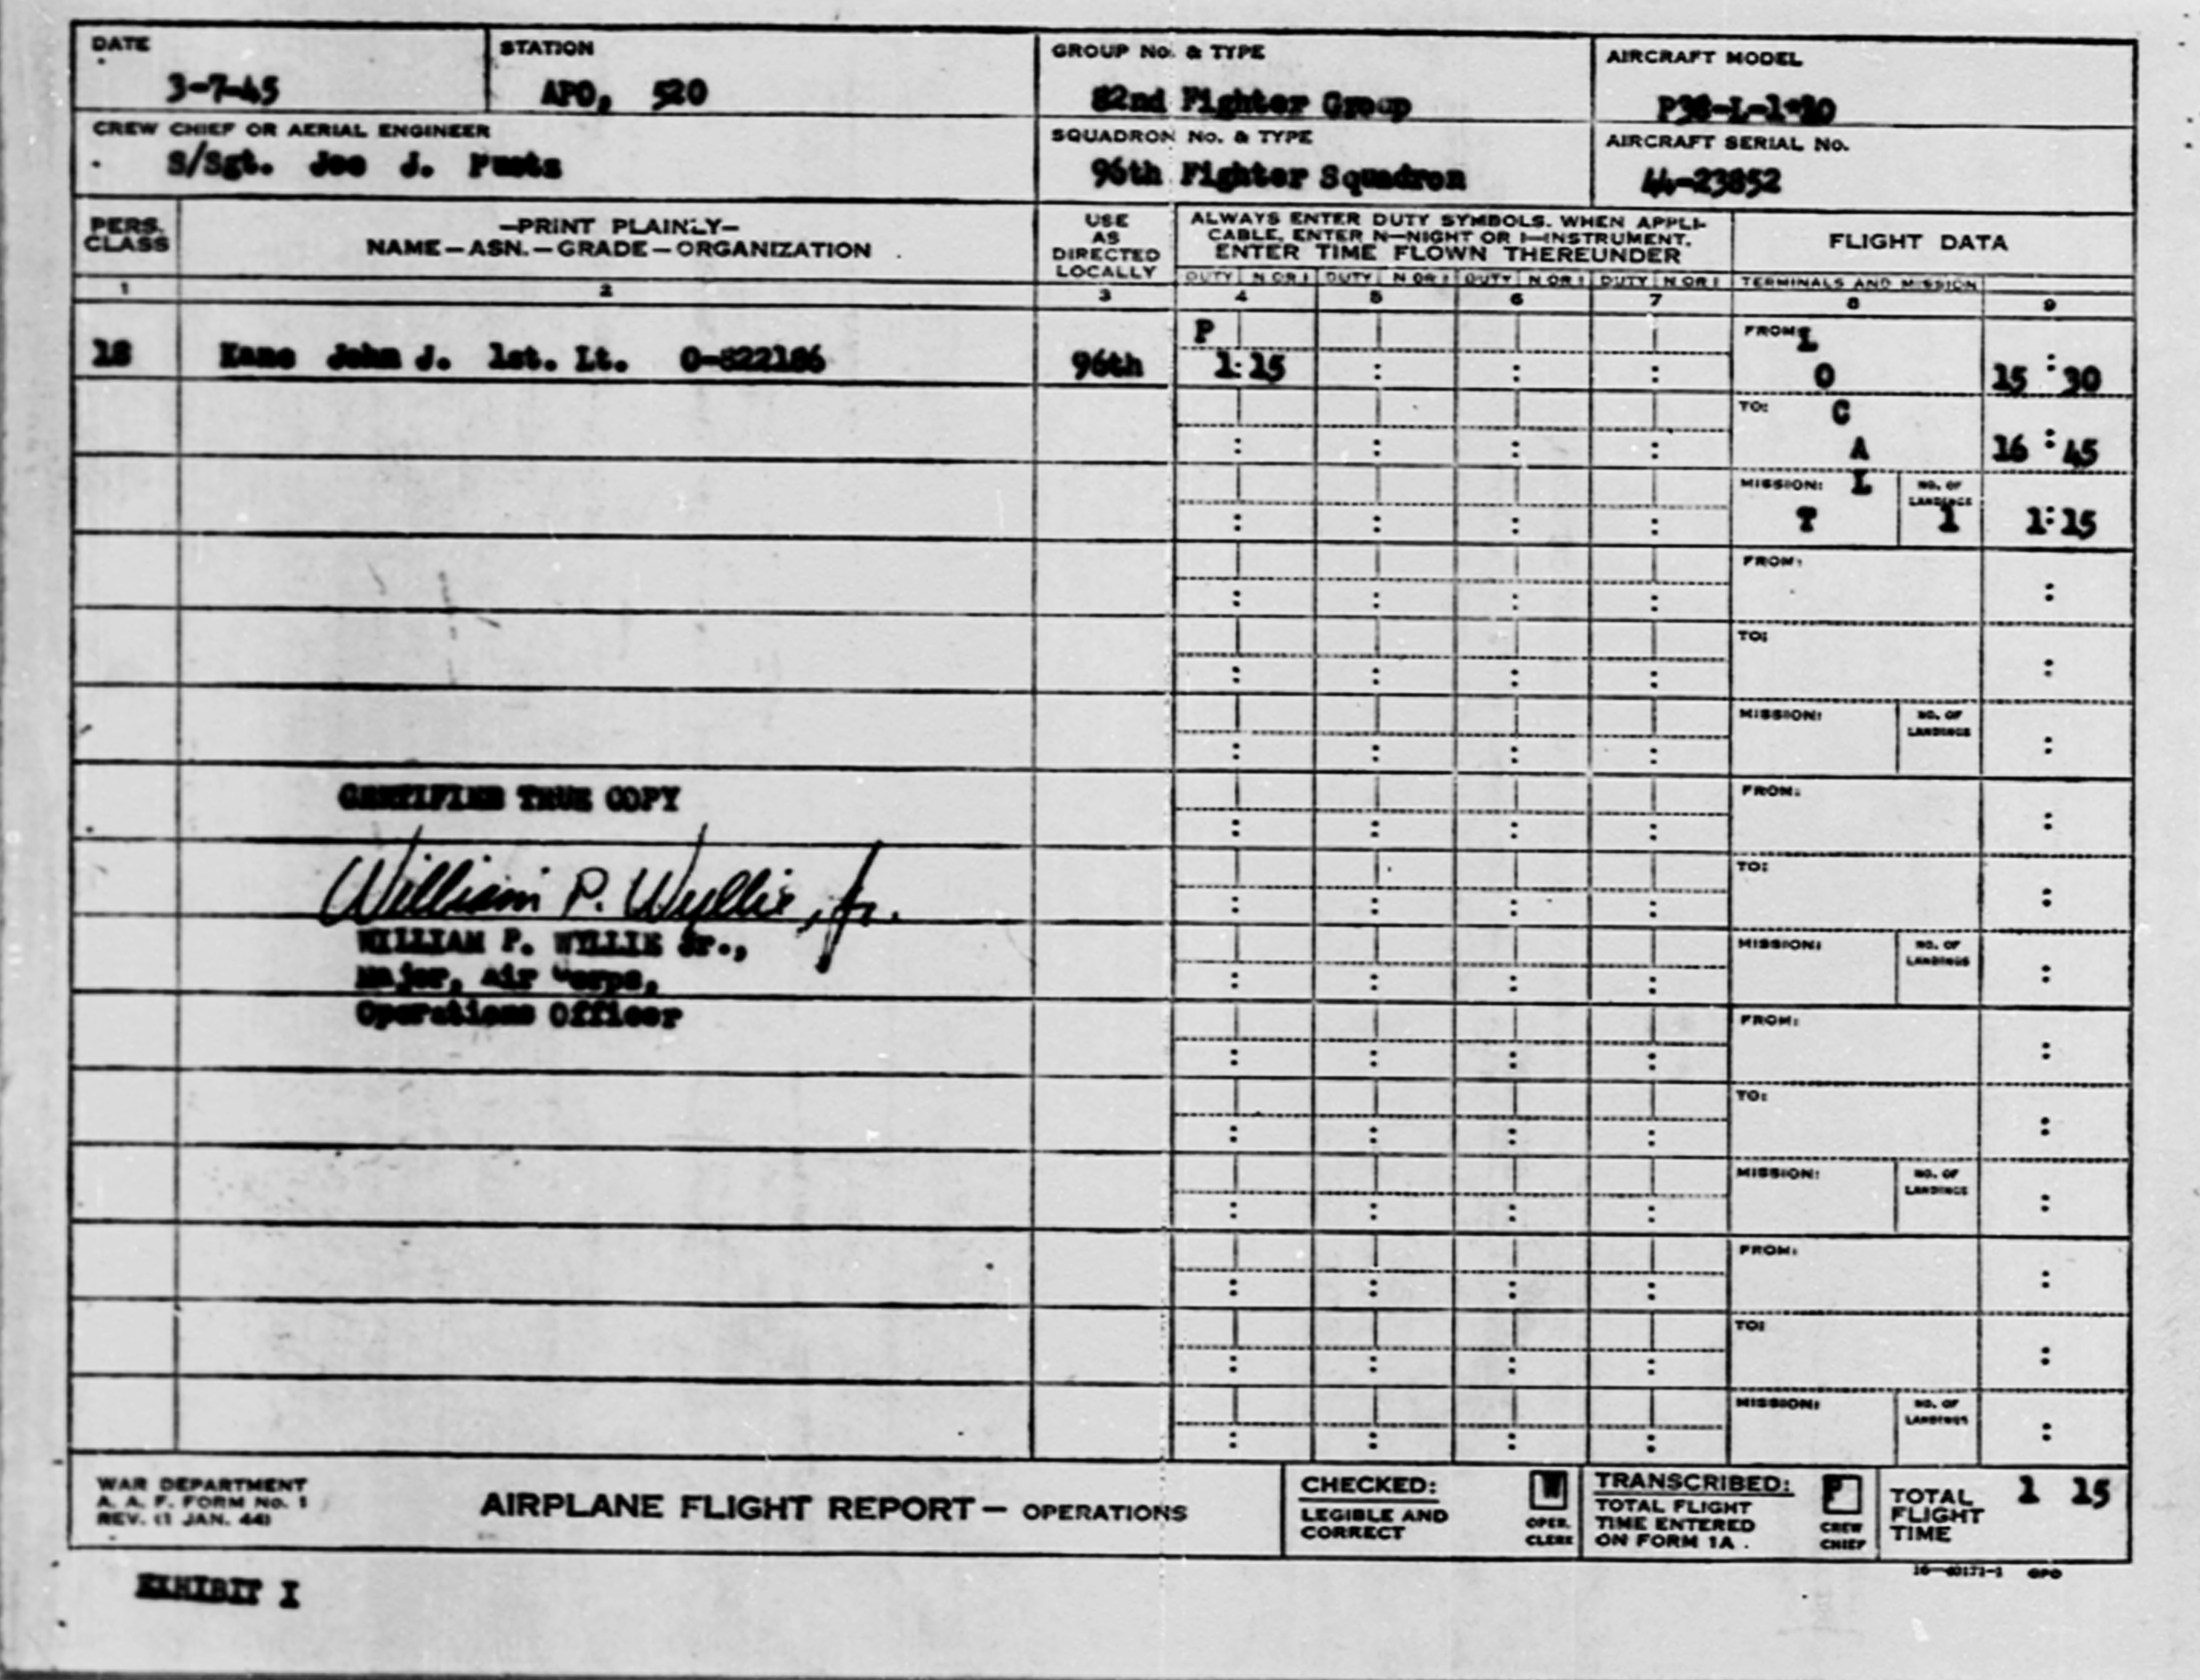 DATE
3-7-45
STATION
APO, 520
GROUP No. & TYPE
82nd Fighter Group
AIRCRAFT MODEL
P38-L-1-
CREW CHIEF OR AERIAL ENGINEER
S/Sgt. Joe J.
SQUADRON No. & TYPE
96th Fighter Squadron
AIRCRAFT SERIAL No.
44-23852
PERS. CLASS
—PRINT PLAINLY—
NAME—ASN.—GRADE—ORGANIZATION
USE
AS
DIRECTED
LOCALLY
ALWAYS ENTER DUTY SYMBOLS. WHEN APPLI-
CABLE, ENTER N—NIGHT OR I—INSTRUMENT.
ENTER TIME FLOWN THEREUNDER
FLIGHT DATA
DUTY N OR I DUTY N OR I DUTY N OR I DUTY N OR I
TERMINALS AND MISSION
1 2 3 4 5 6 7 8 9
18 Kane John J. 1st. Lt. O-822186 96th
P
1:15
FROM:
L
O
15:30
TO:
C
A
16:45
MISSION:
L
T
NO. OF
LANDINGS
1
1:15
FROM:
TO:
MISSION:
NO. OF
LANDINGS
FROM:
TO:
MISSION:
NO. OF
LANDINGS
FROM:
TO:
MISSION:
NO. OF
LANDINGS
FROM:
TO:
MISSION:
NO. OF
LANDINGS
CERTIFIED TRUE COPY
William P. Wyllie, Jr.
WILLIAM P. WYLLIE Jr.,
Major, Air Corps,
Operations Officer
WAR DEPARTMENT
A. A. F. FORM No. 1
REV. (1 JAN. 44)
AIRPLANE FLIGHT REPORT — OPERATIONS
CHECKED:
LEGIBLE AND
CORRECT
W
OPER.
CLERK
TRANSCRIBED:
TOTAL FLIGHT
TIME ENTERED
ON FORM 1A .
P
CREW
CHIEF
TOTAL
FLIGHT
TIME
1 15
16—40171-1 GPO
EXHIBIT I